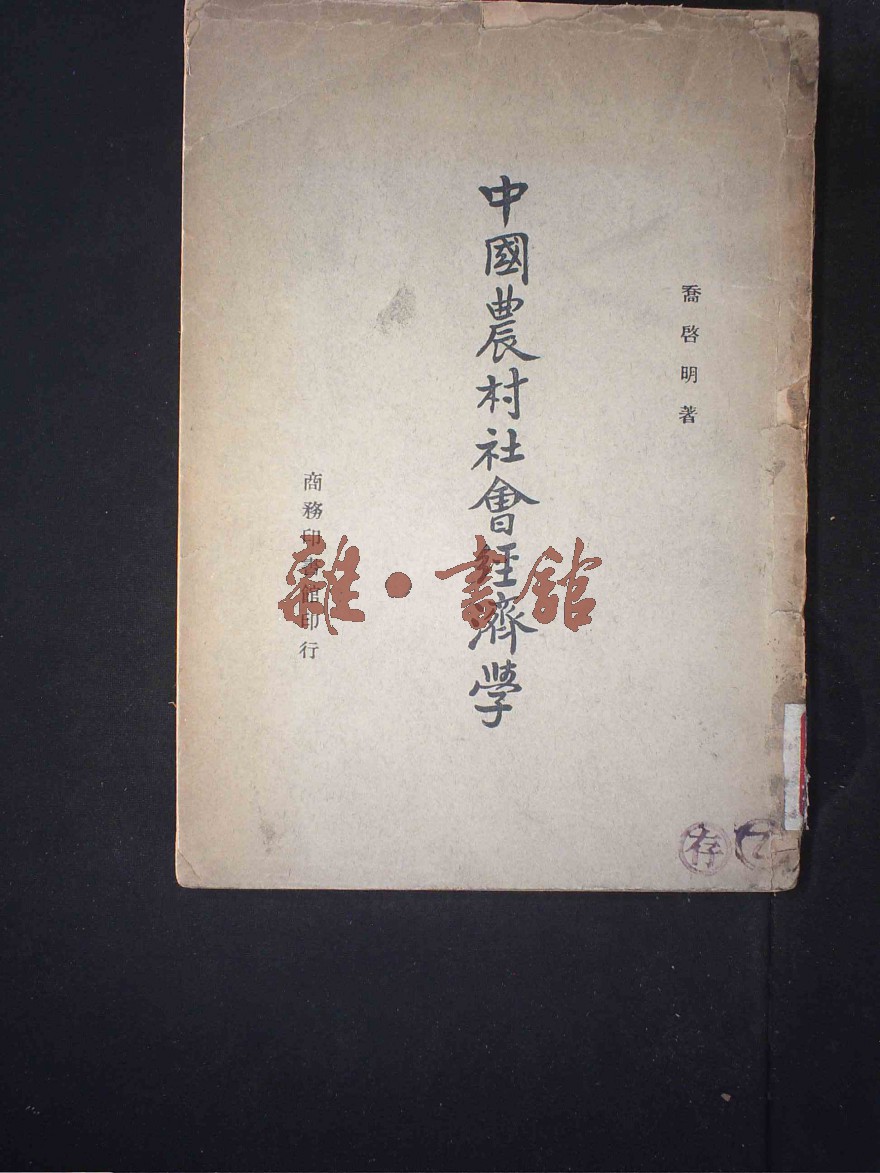 喬啓明著
中國農村社會經濟學
商務印書館印行
雜·書館
存